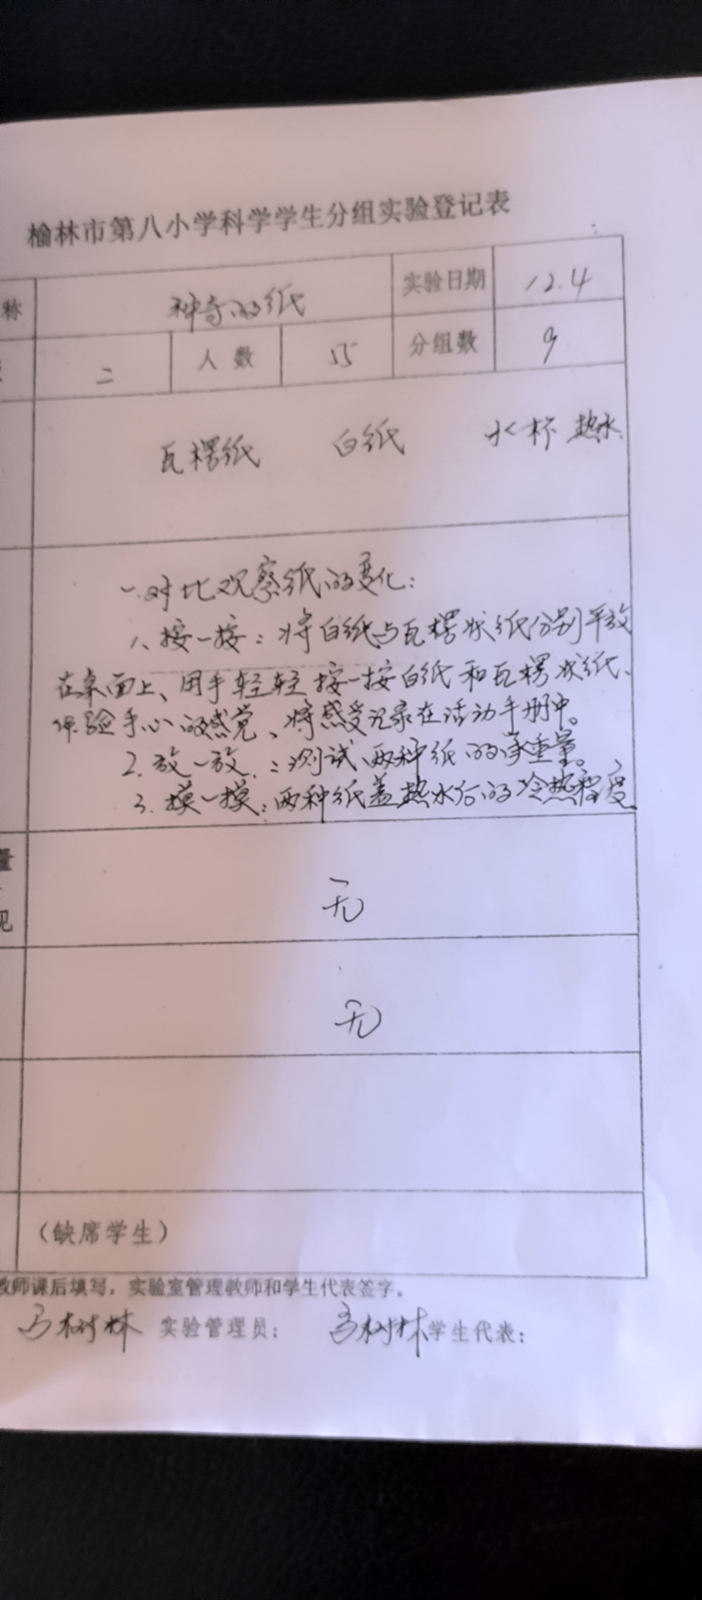 榆林市第八小学科学学生分组实验登记表
称 神奇的纸 实验日期 12.4
二 人数 55 分组数 9
瓦楞纸 白纸 水杯 热水
一.对比观察纸的变化:
1、按一按:将白纸与瓦楞状纸分别平放
在桌面上、用手轻轻按一按白纸和瓦楞状纸、
体验手心的感觉、将感受记录在活动手册中。
2.放一放:测试两种纸的承重量。
3.摸一摸:两种纸盖热水后的冷热程度
量
见 无
无
(缺席学生)
教师课后填写,实验室管理教师和学生代表签字。
马树林 实验管理员: 马树林 学生代表: